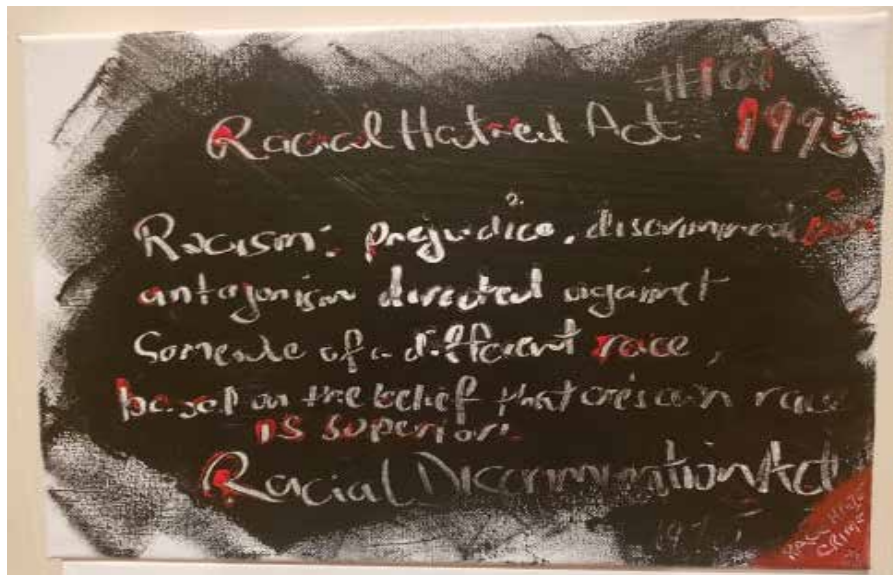 Racial Hatred Act. 1995
Racism: prejudice, discrimination
antagonism directed against
someone of a different race,
based on the belief that one's own race
is superior.
Racial Discrimination Act
CRIME